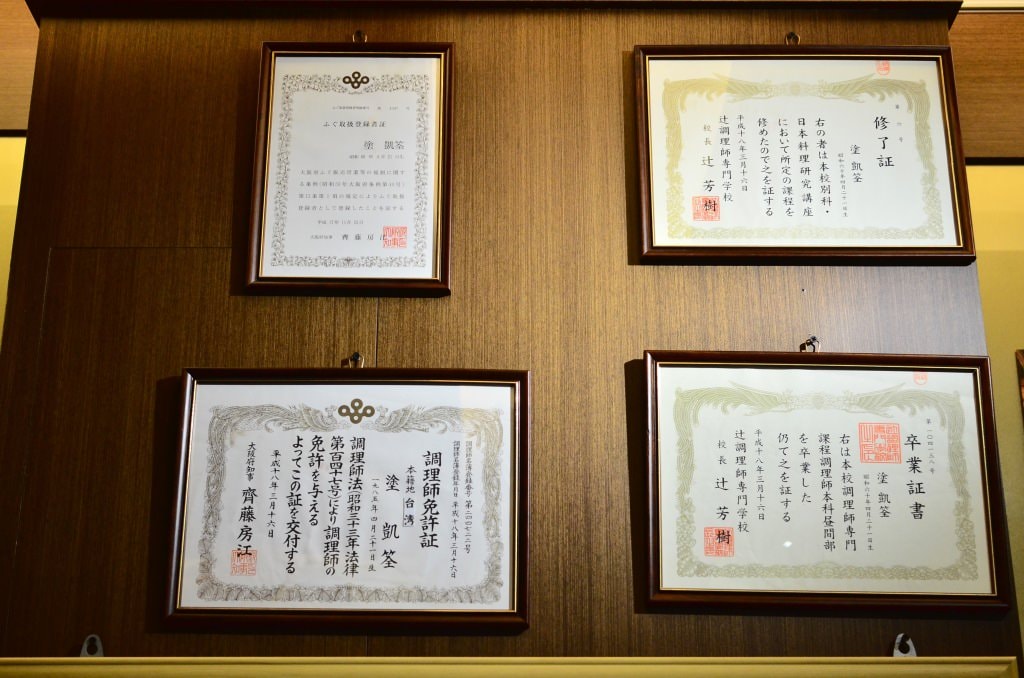 ふぐ取扱登録者証
塗 凱筌
大阪府ふぐ販売営業等の規制に関す
る条例(昭和23年大阪府条例第55号)
登録者として登録したことを証する
大阪府知事 齊藤房江
修了証
塗 凱筌
昭和六十年四月二十一日生
右の者は本校別科・
日本料理研究講座
において所定の課程を
修めたので之を証する
平成十八年三月十六日
辻調理師専門学校
校長 辻 芳樹
調理師名簿登録番号 第二〇〇七二二号
調理師名簿登録年月日 平成十八年三月十六日
調理師免許証
本籍地 台湾
塗 凱筌
一九八五年四月二十一日生
調理師法(昭和三十三年法律
第百四十七号)により調理師の
免許を与える
よってこの証を交付する
平成十八年三月十六日
大阪府知事 齊藤房江
第一〇四一五八号
卒業証書
塗 凱筌
昭和六十年四月二十一日生
右は本校調理師専門
課程調理師本科昼間部
を卒業した
仍て之を証する
平成十八年三月十六日
辻調理師専門学校
校長 辻 芳樹